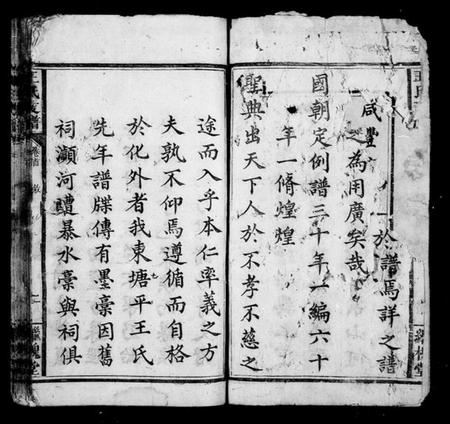 於譜焉詳之譜
之為用廣矣哉
咸豐
國朝定例譜三十年一編六十
年一脩煌煌
聖典出天下人於不孝不慈之
途而入乎本仁率義之方
夫孰不仰焉遵循而自格
於化外者我東塘平王氏
先年譜牒傳有墨稾因舊
祠瀕河遭暴水稾與祠俱
王氏支譜
卷首
槐堂